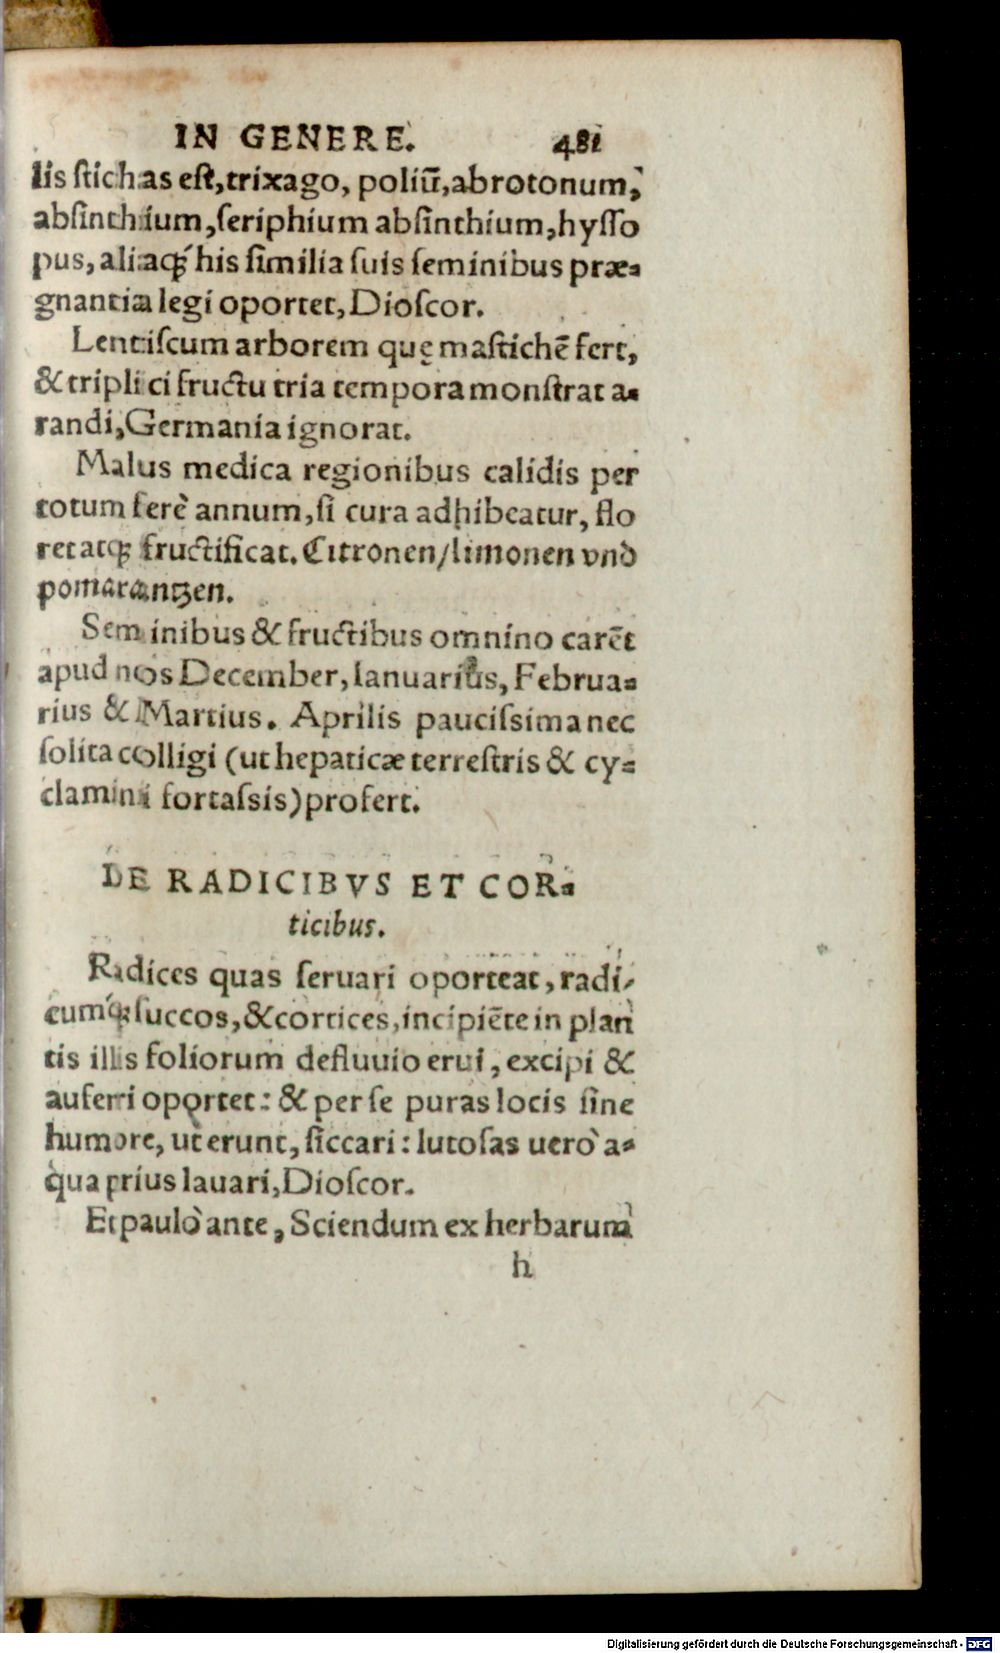 IN GENERE. 481
lis stichas est, trixago, poliũ, abrotonum,
absinthium, seriphium absinthium, hysso
pus, aliaq́ꝫ his similia suis seminibus præ-
gnantia legi oportet, Dioscor.
Lentiscum arborem quę mastichẽ fert,
& triplici fructu tria tempora monstrat a-
randi, Germania ignorat.
Malus medica regionibus calidis per
totum ferè annum, si cura adhibeatur, flo
ret atqꝫ fructificat. Citronen/limonen vnd
pomarantzen.
Seminibus & fructibus omnino carẽt
apud nos December, Ianuarius, Februa-
rius & Martius. Aprilis paucissima nec
solita colligi (ut hepaticæ terrestris & cy-
clamini fortassis) profert.
DE RADICIBVS ET COR-
ticibus.
Radices quas seruari oporteat, radi-
cumq́ꝫ succos, & cortices, incipiẽte in plan
tis illis foliorum defluuio erui, excipi &
auferri oportet: & per se puras locis sine
humore, ut erunt, siccari: lutosas uerò a-
qua prius lauari, Dioscor.
Et paulò ante, Sciendum ex herbarum
h
Digitalisierung gefördert durch die Deutsche Forschungsgemeinschaft - DFG